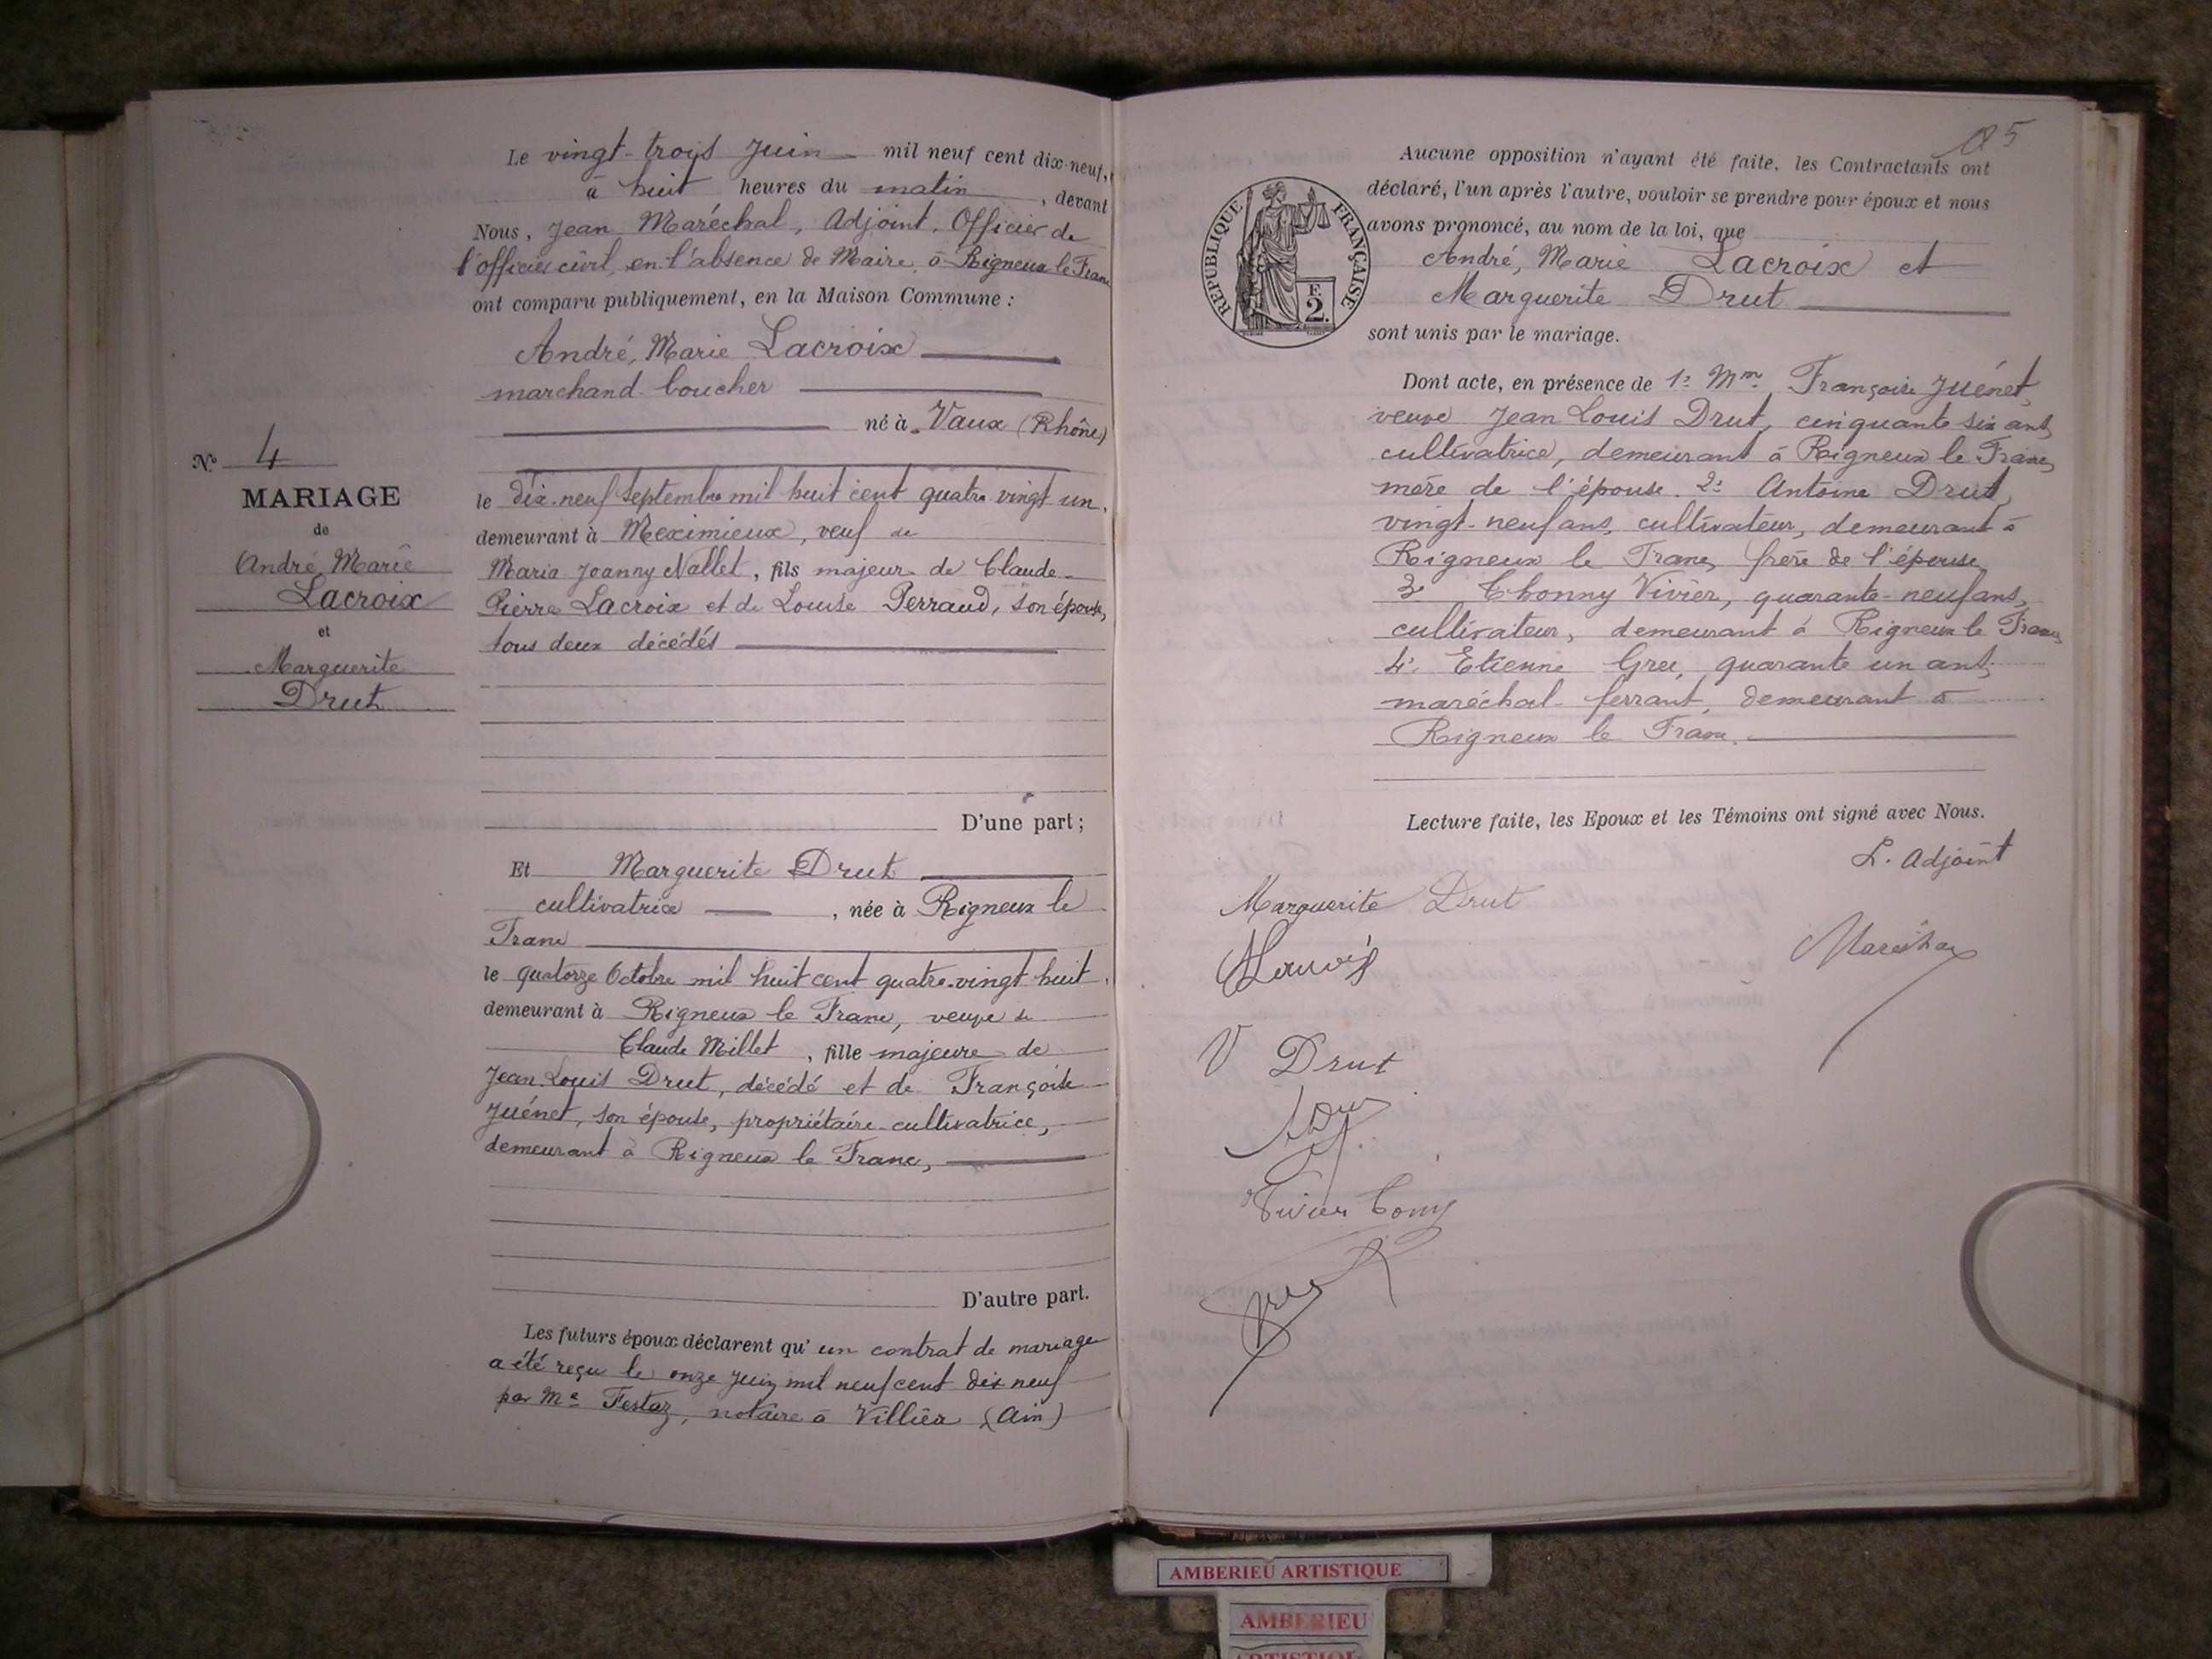 Le vingt-trois Juin mil neuf cent dix-neuf,
à huit heures du matin, devant
Nous, Jean Maréchal, Adjoint, Officier de
l'officier civil, en l'absence de Maire, à Rigneux le Franc
ont comparu publiquement, en la Maison Commune :
André, Marie Lacroix
marchand boucher
né à Vaux (Rhône)
le dix-neuf Septembre mil huit cent quatre vingt un,
demeurant à Meximieux, veuf de
Maria Joanny Nallet, fils majeur de Claude
Pierre Lacroix et de Louise Perraud, son épouse,
tous deux décédés
N° 4
MARIAGE
de
André, Marie
Lacroix
et
Marguerite
Drut
D'une part ;
Et Marguerite Drut
cultivatrice, née à Rigneux le
Franc
le quatorze Octobre mil huit cent quatre-vingt huit,
demeurant à Rigneux le Franc, veuve de
Claude Millet, fille majeure de
Jean Louis Drut, décédé et de Françoise
Juénet, son épouse, propriétaire-cultivatrice,
demeurant à Rigneux le Franc,
D'autre part.
Les futurs époux déclarent qu'un contrat de mariage
a été reçu le onze Juin mil neuf cent dix neuf
par Me Festaz, notaire à Villiex (Ain)
95
Aucune opposition n'ayant été faite, les Contractants ont
déclaré, l'un après l'autre, vouloir se prendre pour époux et nous
avons prononcé, au nom de la loi, que
André, Marie Lacroix et
Marguerite Drut
sont unis par le mariage.
REPUBLIQUE FRANÇAISE
F.
2.
Dont acte, en présence de 1° Mme Françoise Juénet,
veuve Jean Louis Drut, cinquante six ans,
cultivatrice, demeurant à Rigneux le Franc,
mère de l'épouse. 2° Antoine Drut,
vingt-neuf ans, cultivateur, demeurant à
Rigneux le Franc, frère de l'épouse,
3° Thonny Vivier, quarante-neuf ans,
cultivateur, demeurant à Rigneux le Franc
4° Etienne Gree, quarante un ans,
maréchal-ferrant, demeurant à
Rigneux le Franc.
Lecture faite, les Epoux et les Témoins ont signé avec Nous.
L. Adjoint
Marguerite Drut
Maréchal
V Drut
Vivier Tony
AMBERIEU ARTISTIQUE
AMBERIEU
ARTISTIQUE